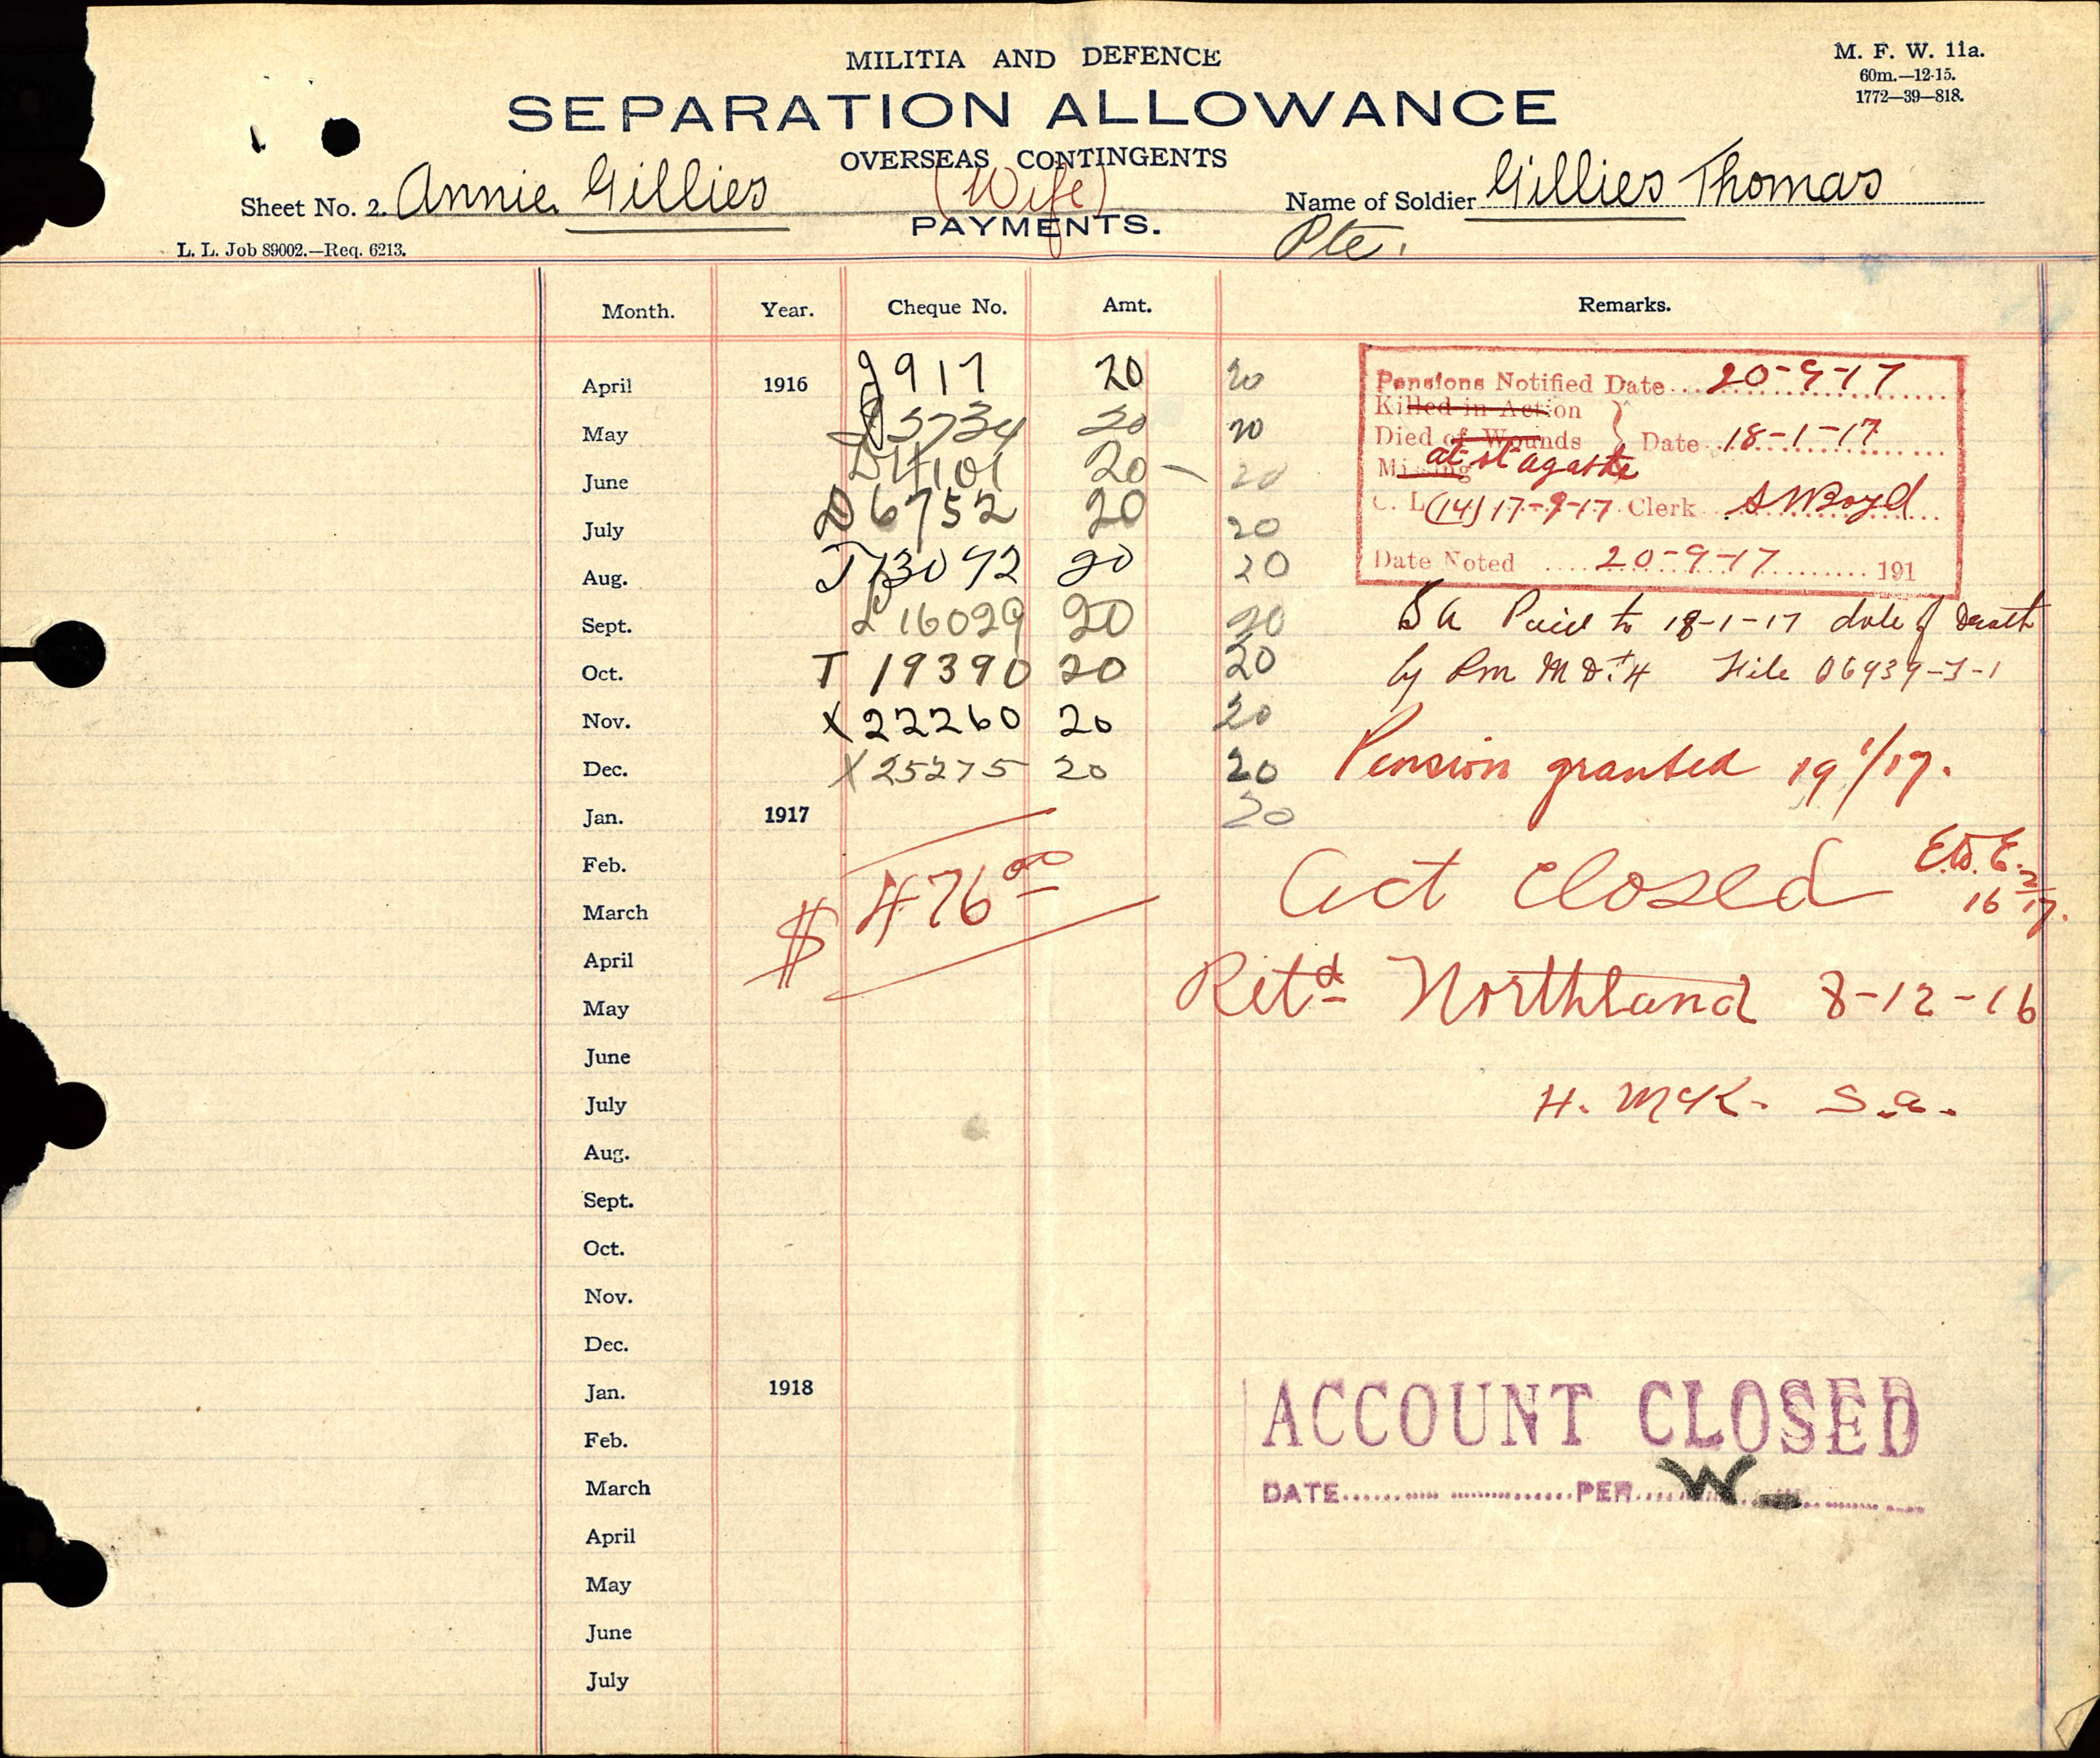 MILITIA AND DEFENCE
M. F. W. 11a.
60m.—12-15.
1772—39—818.
SEPARATION ALLOWANCE
OVERSEAS CONTINGENTS
Sheet No. 2. Annie Gillies (Wife)
Name of Soldier Gillies Thomas
PAYMENTS.
Pte.
L. L. Job 89002.—Req. 6213.
Month. Year. Cheque No. Amt. Remarks.
April 1916 9917 20 20
May 3734 20 20
June 20 20
July 6752 20 20
Aug. 13092 20 20
Sept. 16029 20 20
Oct. T 19390 20 20
Nov. X22260 20 20
Dec. X25275 20 20
Jan. 1917 20
Feb.
$ 476 00
March
April
May
June
July
Aug.
Sept.
Oct.
Nov.
Dec.
Jan. 1918
Feb.
March
April
May
June
July
Pensions Notified Date 20-9-17
Killed in Action
Died of Wounds } Date 18-1-17
at St agathe
Missing
C. L (14) 17-9-17 Clerk S W Boyd
Date Noted 20-9-17 191
S A Paid to 18-1-17 date of Death
by Pm M D. 4 File 06939-J-1
Pension granted 19 1/17.
Act Closed E.W.E.
16 2/17.
Ret d Northland 8-12-16
H. McK. S.a.
ACCOUNT CLOSED
DATE PER W